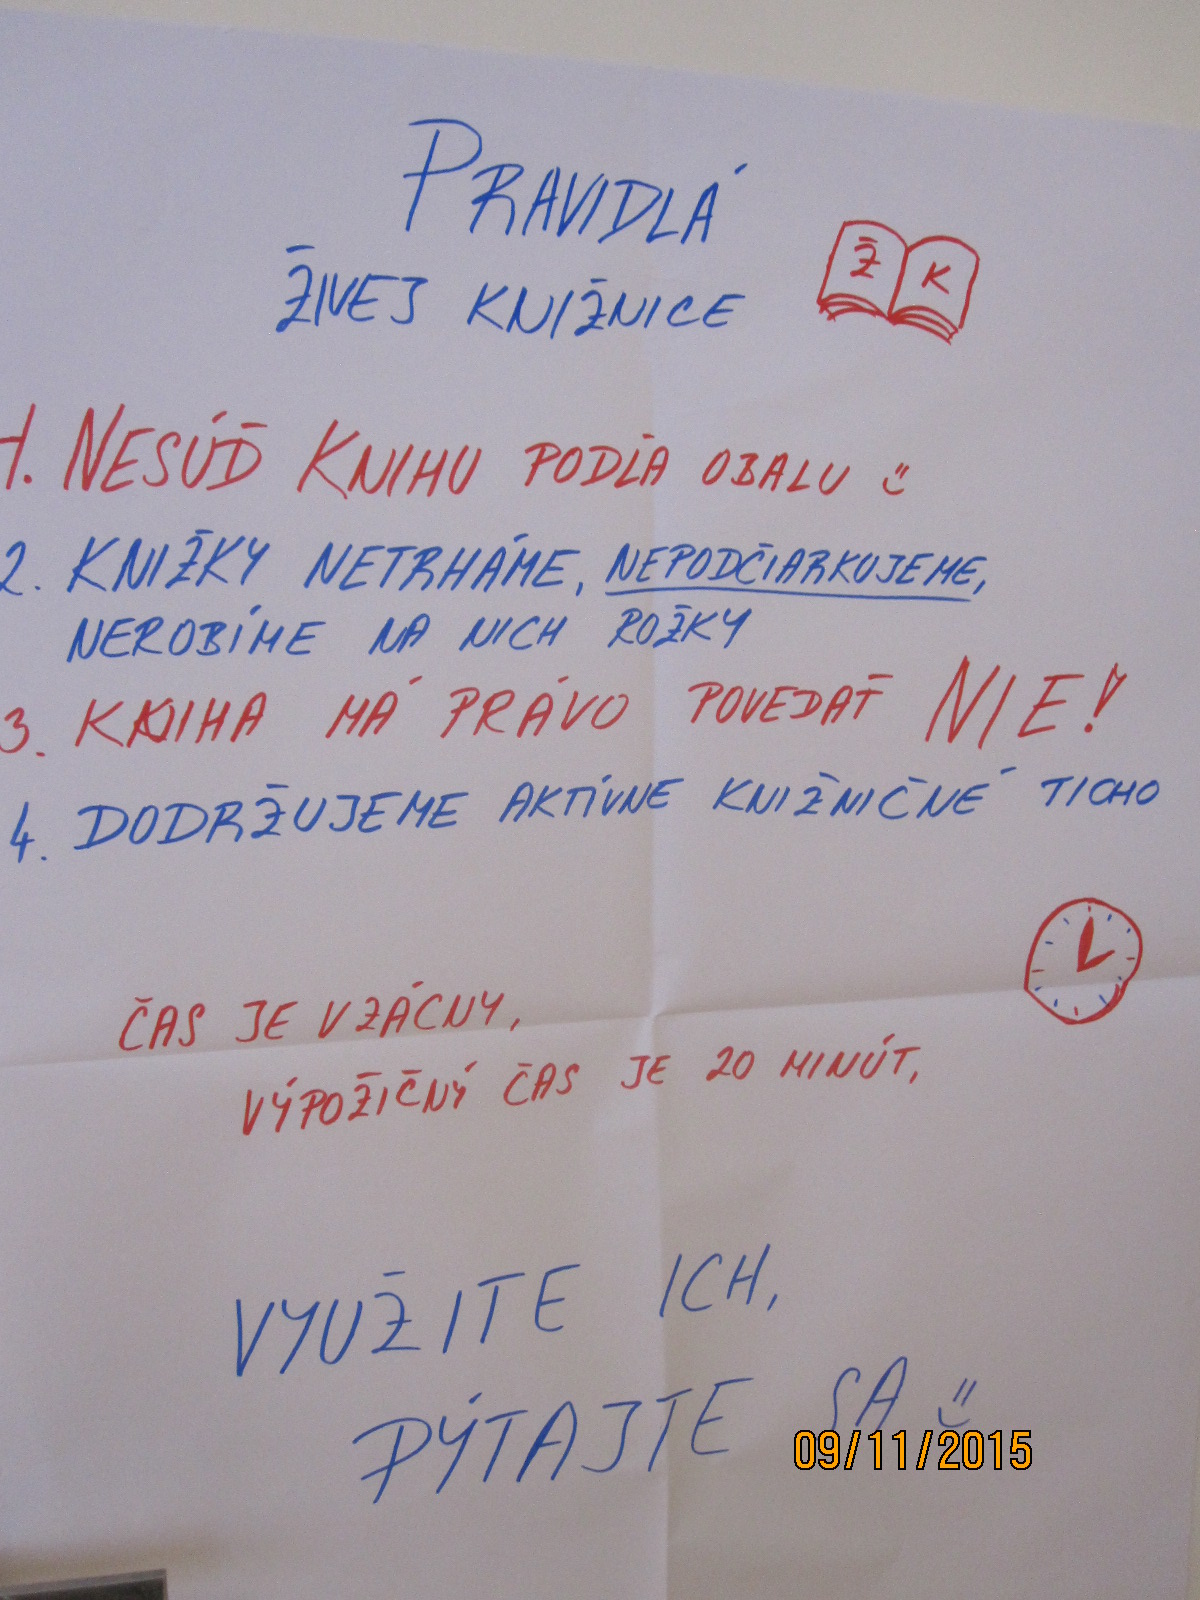 PRAVIDLÁ
ŽIVEJ KNIŽNICE
Ž K
1. NESÚĎ KNIHU PODĽA OBALU :)
2. KNIŽKY NETRHÁME, NEPODČIARKUJEME,
NEROBÍME NA NICH ROŽKY
3. KNIHA MÁ PRÁVO POVEDAŤ NIE!
4. DODRŽUJEME AKTÍVNE KNIŽNIČNÉ TICHO
ČAS JE VZÁCNY,
VÝPOŽIČNÝ ČAS JE 20 MINÚT,
VYUŽITE ICH,
PÝTAJTE SA :)
09/11/2015